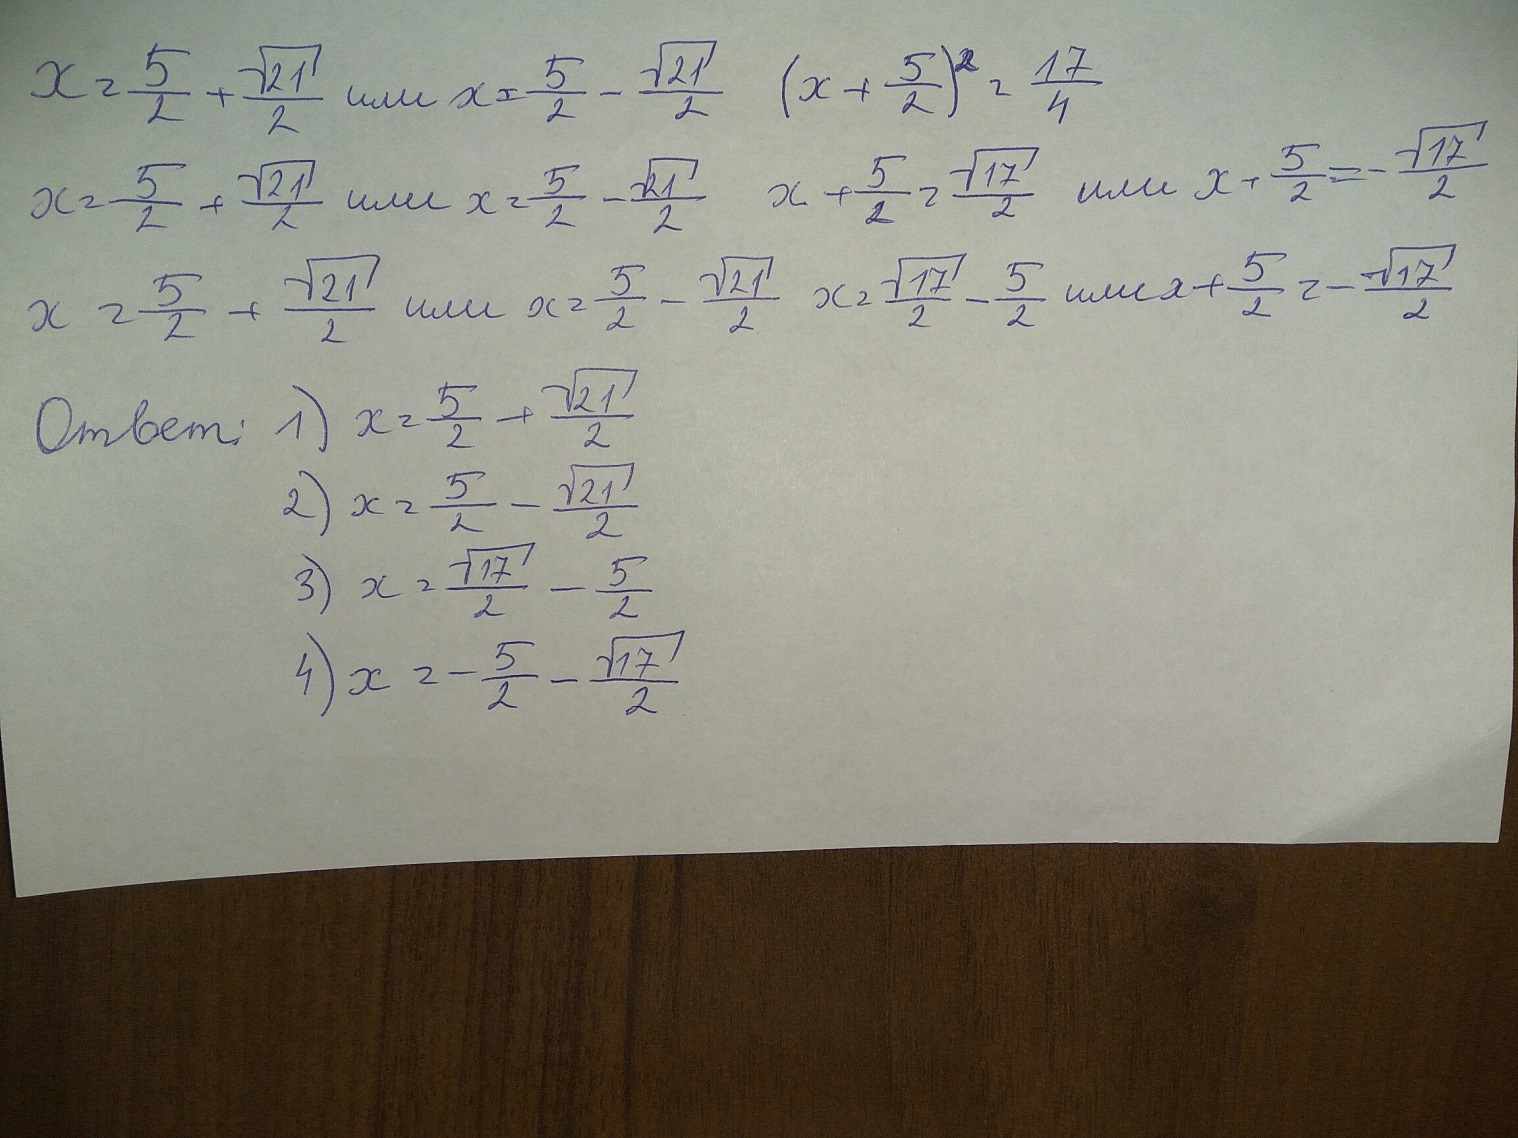 x = 5/2 + √21/2 или x = 5/2 - √21/2 (x + 5/2)² = 17/4
x = 5/2 + √21/2 или x = 5/2 - √21/2 x + 5/2 = √17/2 или x + 5/2 = - √17/2
x = 5/2 + √21/2 или x = 5/2 - √21/2 x = √17/2 - 5/2 или x + 5/2 = - √17/2
Ответ: 1) x = 5/2 + √21/2
2) x = 5/2 - √21/2
3) x = √17/2 - 5/2
4) x = - 5/2 - √17/2